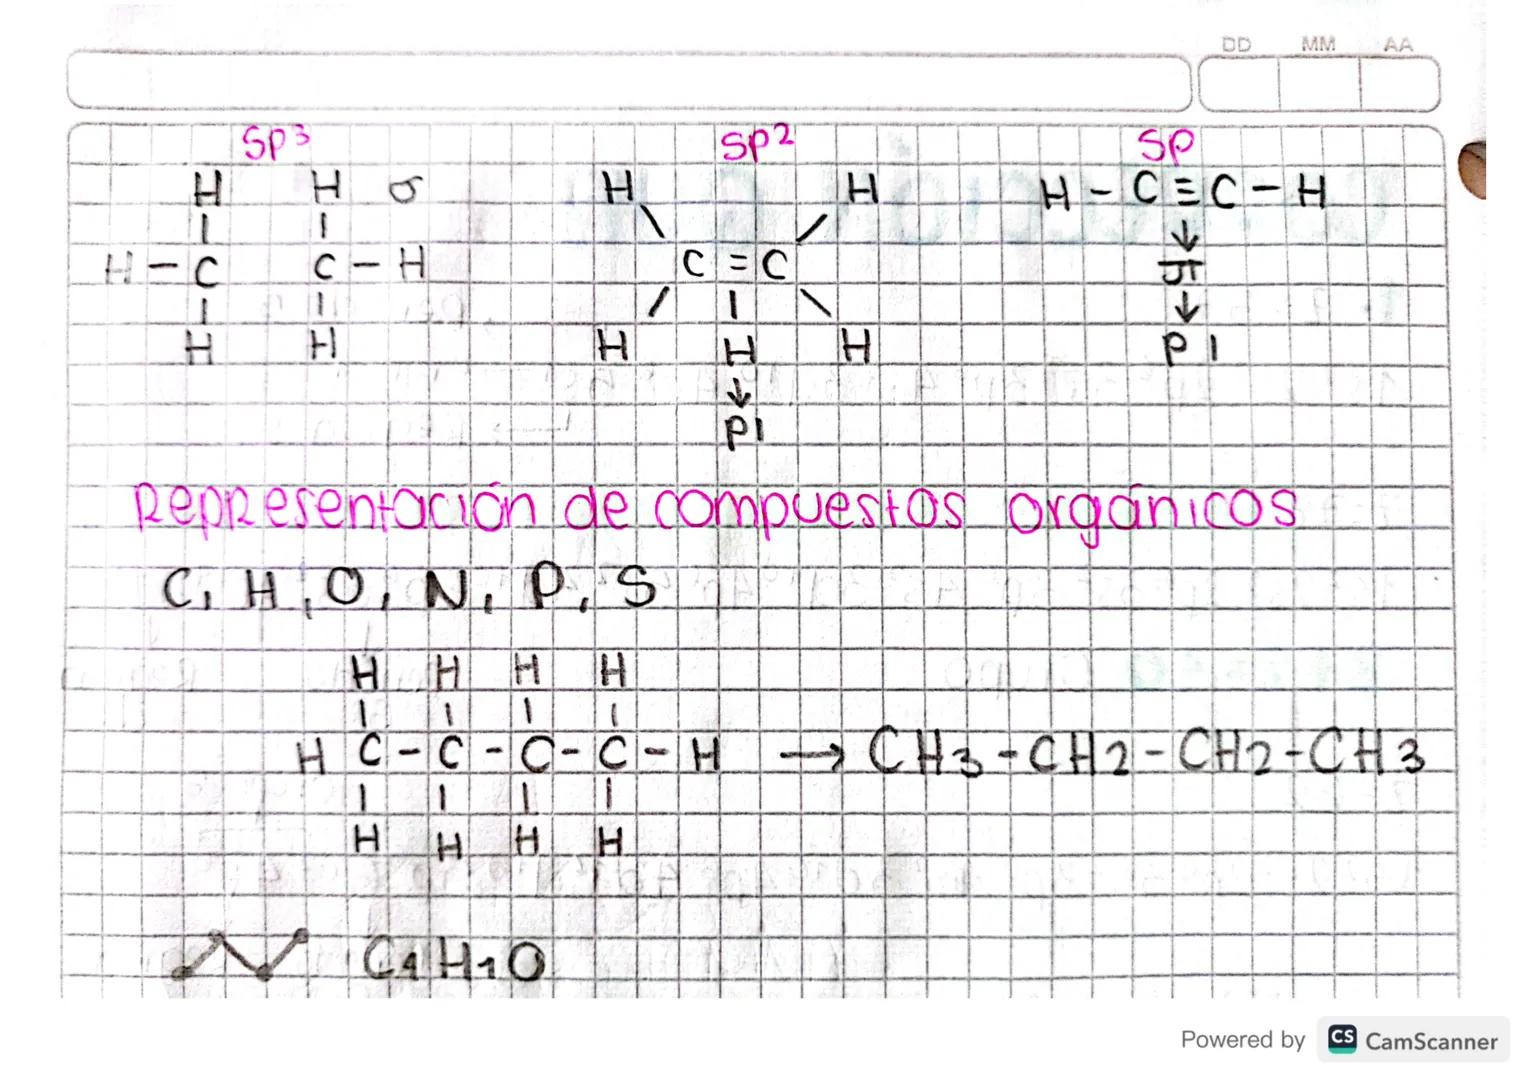 DD MM AA
sp3 sp2 sp
H H σ H H H - C ≡ C - H
H - C C - H C = C π
H H H H H PI
PI
Representación de compuestos orgánicos
C, H, O, N, P, S
H H H H
H C - C - C - C - H → CH3 - CH2 - CH2 - CH3
H H H H
C4H10
Powered by CS CamScanner